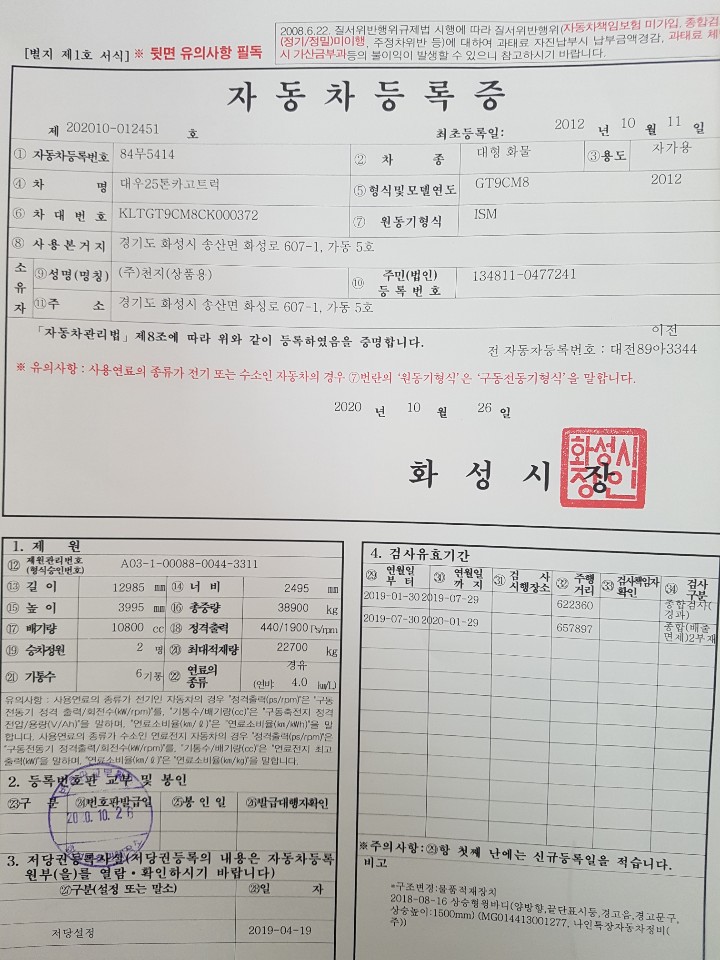 2008.6.22. 질서위반행위규제법 시행에 따라 질서위반행위(자동차책임보험 미가입, 종합검
[별지 제1호 서식] ※ 뒷면 유의사항 필독
(정기/정밀)미이행, 주정차위반 등)에 대하여 과태료 자진납부시 납부금액경감, 과태료 체
시 가산금부과등의 불이익이 발생할 수 있으니 참고하시기 바랍니다.
자동차등록증
제 202010-012451 호 최초등록일: 2012 년 10 월 11 일
① 자동차등록번호 84무5414 ② 차 종 대형 화물 ③용도 자가용
④ 차 명 대우25톤카고트럭 ⑤형식및모델연도 GT9CM8 2012
⑥ 차 대 번 호 KLTGT9CM8CK000372 ⑦ 원동기형식 ISM
⑧ 사 용 본 거 지 경기도 화성시 송산면 화성로 607-1, 가동 5호
소유자 ⑨성명(명칭) (주)천지(상품용) ⑩ 주민(법인)등 록 번 호 134811-0477241
⑪주 소 경기도 화성시 송산면 화성로 607-1, 가동 5호
「자동차관리법」제8조에 따라 위와 같이 등록하였음을 증명합니다.
이전
전 자동차등록번호 : 대전89아3344
※ 유의사항 : 사용연료의 종류가 전기 또는 수소인 자동차의 경우 ⑦번란의 '원동기형식'은 '구동전동기형식'을 말합니다.
2020 년 10 월 26 일
화 성 시 장
화성시
장인
1. 제 원
⑫ 제원관리번호(형식승인번호) A03-1-00088-0044-3311
⑬ 길 이 12985 mm ⑭ 너 비 2495 mm
⑮ 높 이 3995 mm ⑯ 총중량 38900 kg
⑰ 배기량 10800 cc ⑱ 정격출력 440/1900 Ps/rpm
⑲ 승차정원 2 명 ⑳ 최대적재량 22700 kg
㉑ 기통수 6 기통 ㉒ 연료의 종류 경유 (연비 4.0 km/L)
유의사항 : 사용연료의 종류가 전기인 자동차의 경우 "정격출력(ps/rpm)"은 "구동
전동기 정격 출력/회전수(kW/rpm)"를, "기통수/배기량(cc)"은 "구동축전지 정격
전압/용량(V/Ah)"을 말하며, "연료소비율(km/ℓ)"은 "연료소비율(km/kWh)"을 말
합니다. 사용연료의 종류가 수소인 연료전지 자동차의 경우 "정격출력(ps/rpm)"은
"구동전동기 정격출력/회전수(kW/rpm)"를, "기통수/배기량(cc)"은 "연료전지 최고
출력(kW)"을 말하며, "연료소비율(km/ℓ)"은 "연료소비율(km/kg)"을 말합니다.
2. 등록번호판 교부 및 봉인
㉓구 분 ㉔번호판발급일 ㉕봉 인 일 ㉖발급대행자확인
2020.10.26
3. 저당권등록사실(저당권등록의 내용은 자동차등록
원부(을)를 열람·확인하시기 바랍니다)
㉗구분(설정 또는 말소) ㉘일 자
저당설정 2019-04-19
4. 검사유효기간
㉙ 연월일부 터 ㉚ 연월일까 지 ㉛ 검 사시행장소 ㉜ 주행거리 ㉝ 검사책임자확인 ㉞ 검사구분
2019-01-30 2019-07-29 622360 종합검사(경과)
2019-07-30 2020-01-29 657897 종합(배출면제)2부재
※주의사항:㉙항 첫째 난에는 신규등록일을 적습니다.
비고
*구조변경:물품적재장치
2018-08-16 상승형윙바디(양방향,끝단표시등,경고음,경고문구,
상승높이:1500mm) (MG014413001277, 나인특장자동차정비(
주))